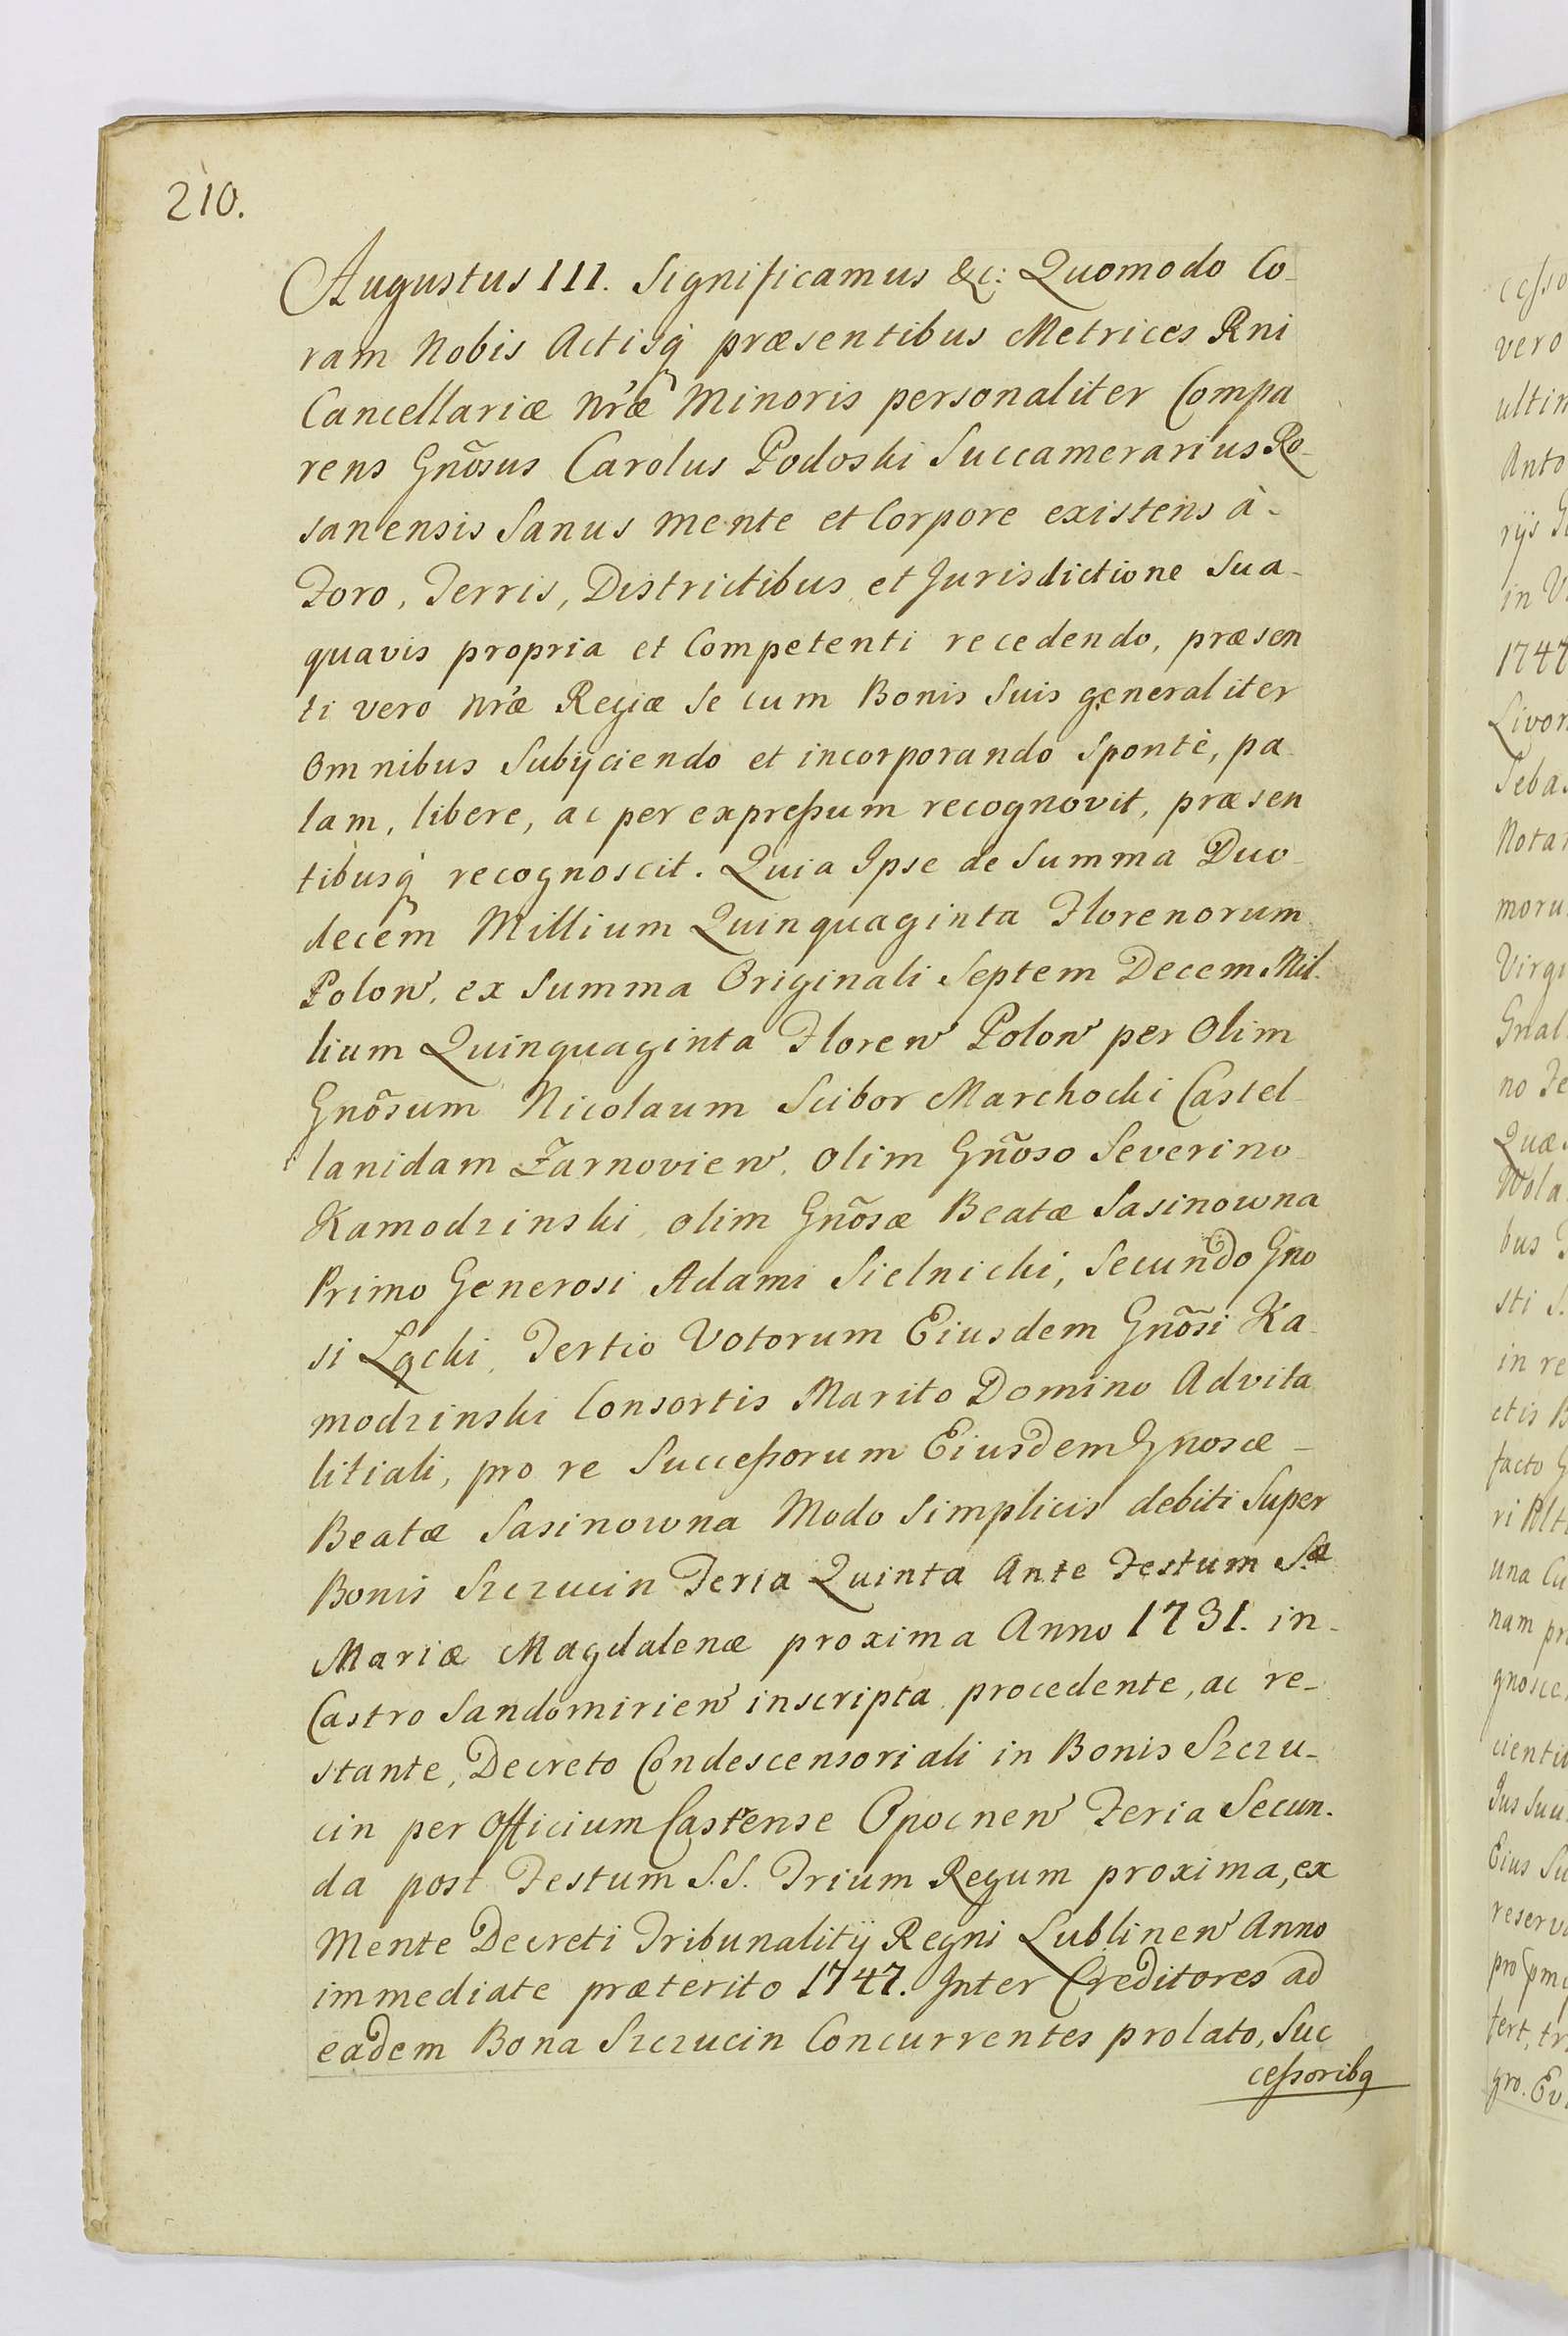 210.
Augustus III. Significamus &c: Quomodo Co-
ram Nobis Actisq̀ præsentibus Metrices Rni
Cancellariæ Nr̃æ Minoris personaliter Compa
rens Gnõsus Carolus Podoski Succamerarius Ro-
sanensis Sanus mente et Corpore existens à-
Foro, Terris, Districtibus et Jurisdictione Sua-
quavis propria et Competenti recedendo, præsen
ti vero Nr̃æ Regiæ Se cum Bonis Suis generaliter
Omnibus Subijciendo et incorporando Spontè, pa
lam, libere, ac per expreßum recognovit, præsen
tibusq̀ recognoscit. Quia Ipse de Summa Duo-
decem Millium Quinquaginta Florenorum
Polon̄. ex Summa Originali Septem Decem Mil-
lium Quinquaginta Floren̄ Polon̄ per Olim
Gnõsum Nicolaum Scibor Marchocki Castel-
lanidam Żarnovien̄. Olim Gnõso Severino-
Kamodzinski, olim Gnõsæ Beatæ Sasinowna
Primo Generosi Adami Sielnicki, Secundo Gno
si Łącki, Tertio Votorum Eiusdem Gnõsi Ka-
modzinski Consortis Marito Domino Advita
litiali, pro re Succeßorum Eiusdem Gnosæ-
Beatæ Sasinowna Modo Simplicis debiti Super
Bonis Szczucin Feria Quinta Ante Festum S.æ
Mariæ Magdalenæ proxima Anno 1731. in-
Castro Sandomirien̄ inscripta procedente, ac re-
stante, Decreto Condescensoriali in Bonis Szczu-
cin per Officium Castrense Opocnen̄ Feria Secun-
da post Festum S.S. Trium Regum proxima, ex
Mente Decreti Tribunalitij Regni Lublinen̄ Anno
immediate præterito 1747. Inter Creditores ad
eadem Bona Szczucin Concurrentes prolato, Suc
ceßoribq
vero
ultim
Anto
in V
1747
Livon
Sebas
Notar
moru
Virgi
Gnal
Quæ
Wola
bus
sti S.
in re
facto G
una Cu
nam pr
gnosce
cienti
Jus Suu
Eius Su
reserva